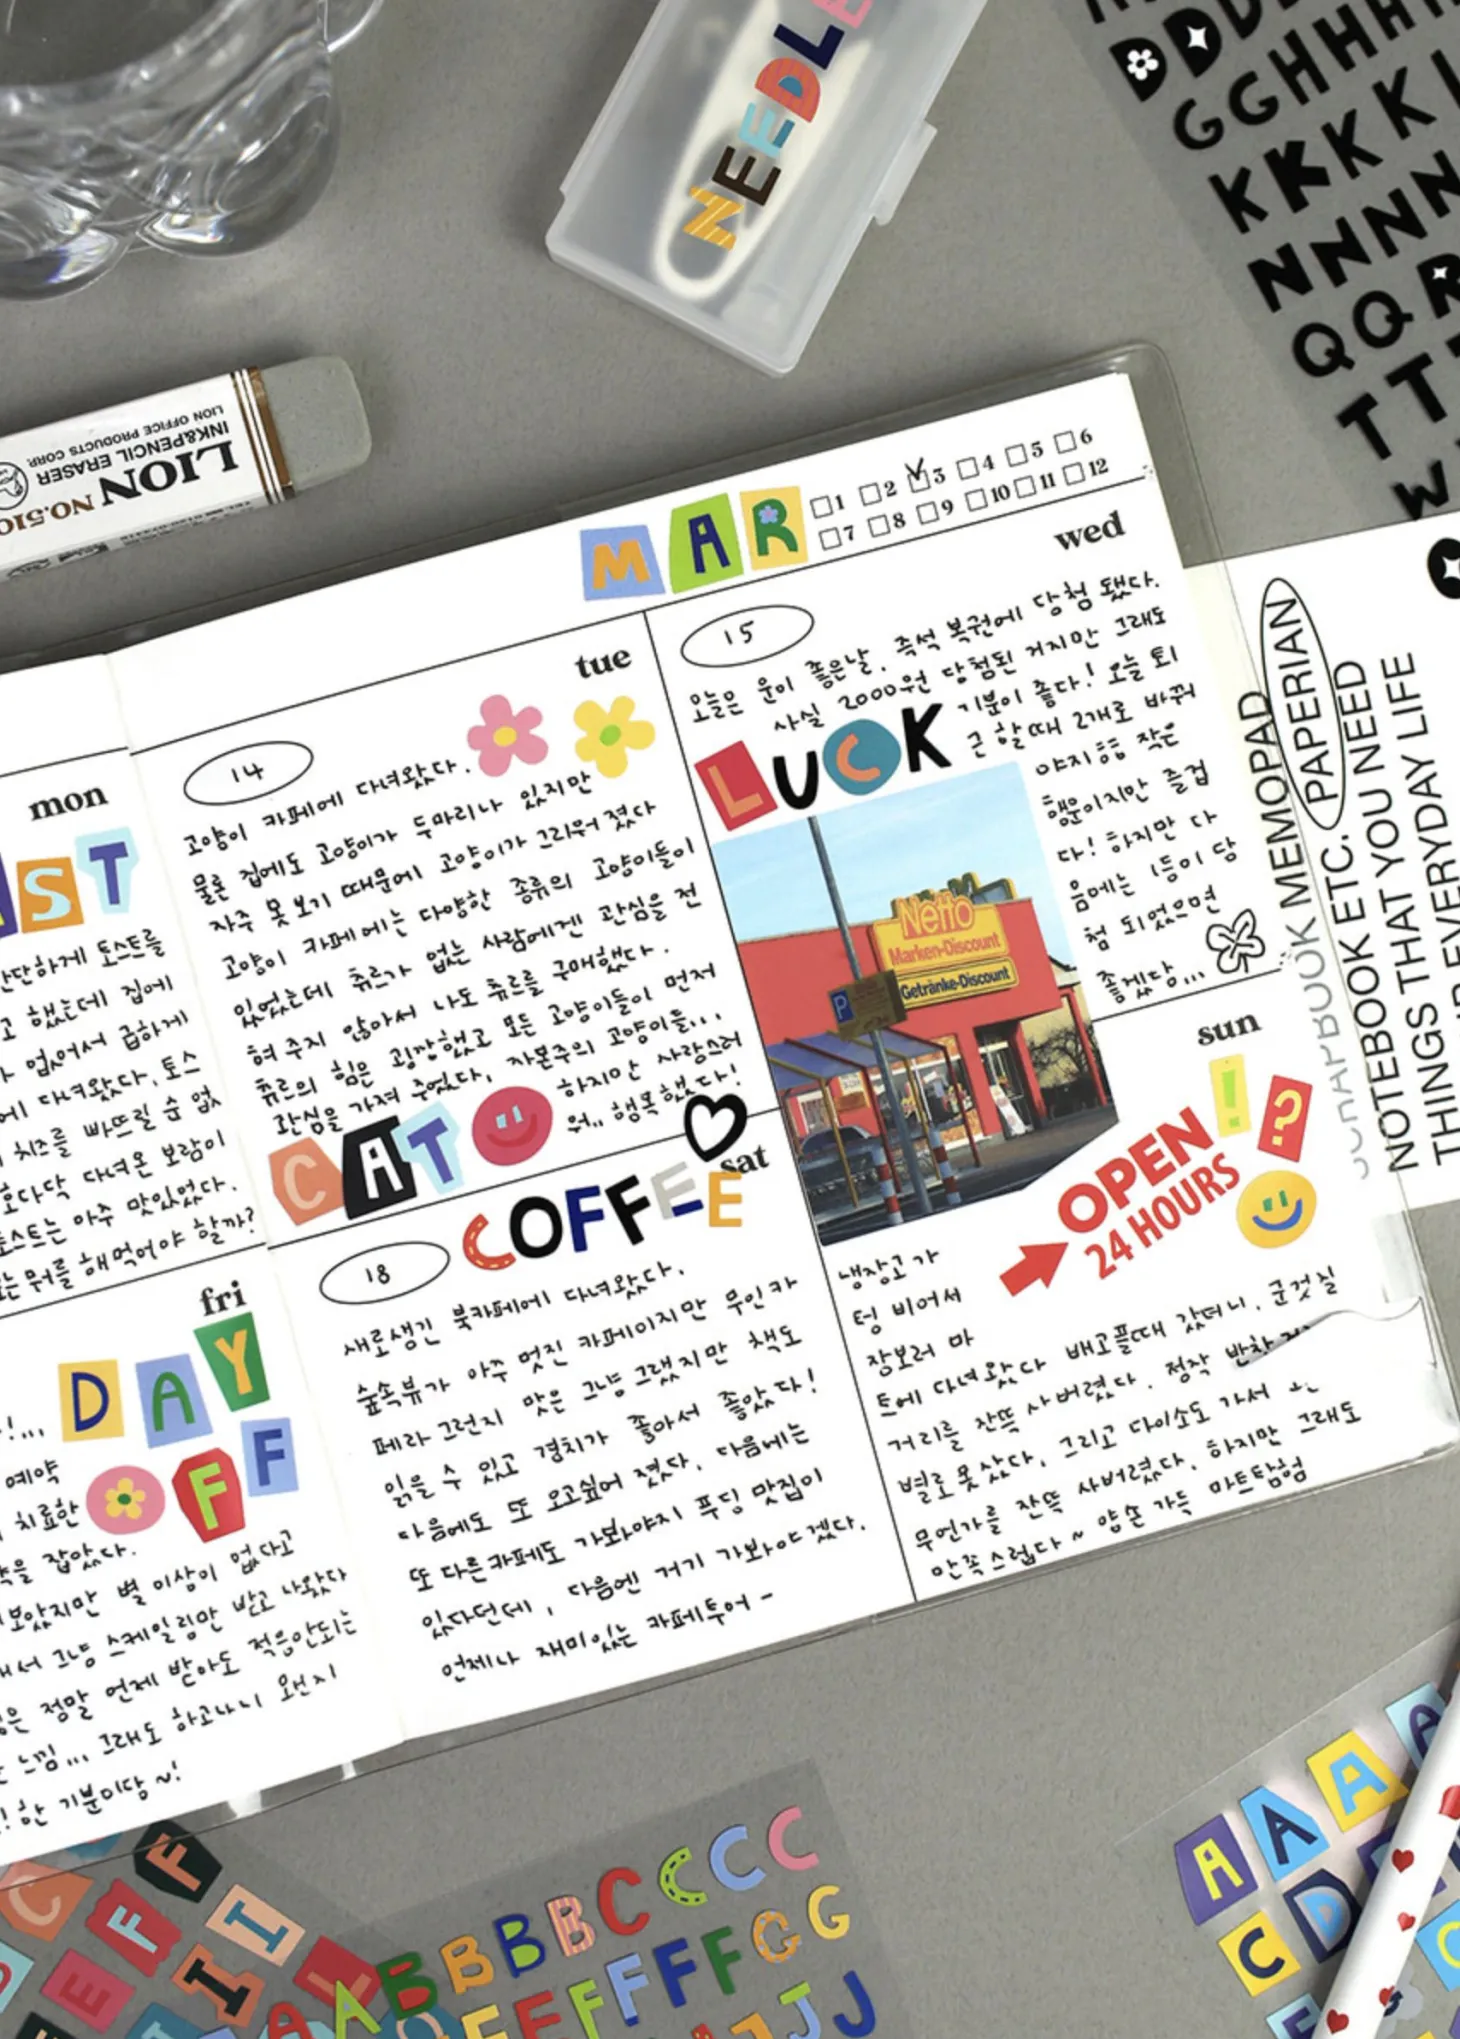 NEEDLE
D D D
G G H H H H
K K K K
N N N N
Q Q R
T T
W
LION NO.510
INK&PENCIL ERASER
LION OFFICE PRODUCTS CORP.
MAR
1 2 3 4 5 6
7 8 9 10 11 12
mon
ST
간단하게 토스트를
고 했는데 집에
없어서 급하게
에 다녀왔다. 토스
치즈를 빠뜨릴 순 없
호다닥 다녀온 보람이
토스트는 아주 맛있었다.
는 뭐를 해먹어야 할까?
tue
14
고양이 카페에 다녀왔다.
물론 집에도 고양이가 두마리나 있지만
자주 못 보기 때문에 고양이가 그리워 졌다
고양이 카페에는 다양한 종류의 고양이들이
있었는데 츄르가 없는 사람에겐 관심을 전
혀 주지 않아서 나도 츄르를 구매했다.
츄르의 힘은 굉장했고 모든 고양이들이 먼저
관심을 가져 주었다, 자본주의 고양이들...
하지만 사랑스러
워.. 행복했다!
CAT
wed
15
오늘은 운이 좋은날. 즉석 복권에 당첨 됐다.
사실 2000원 당첨된 거지만 그래도
기분이 좋다! 오늘 퇴
근 할때 2개로 바꿔
야지ㅎㅎ 작은
행운이지만 즐겁
다! 하지만 다
음에는 1등이 당
첨 되었으면
좋겠당...
LUCK
Netto
Marken-Discount
Getränke-Discount
P
fri
DAY
OFF
!...
예약
치료한
을 잡았다.
보았지만 별 이상이 없다고
해서 그냥 스케일링만 받고 나왔다
은 정말 언제 받아도 적응안되는
느낌... 그래도 하고나니 왠지
한 기분이당~!
sat
COFFEE
18
새로생긴 북카페에 다녀왔다.
숲속뷰가 아주 멋진 카페이지만 무인카
페라 그런지 맛은 그냥 그랬지만 책도
읽을 수 있고 경치가 좋아서 좋았다!
다음에도 또 오고싶어 졌다. 다음에는
또 다른카페도 가봐야지 푸딩 맛집이
있다던데, 다음엔 거기 가봐야겠다.
언제나 재미있는 카페투어 -
sun
!?
OPEN
24 HOURS
냉장고가
텅 비어서
장보러 마
트에 다녀왔다 배고플때 갔더니, 군것질
거리를 잔뜩 사버렸다. 정작 반찬
별로 못 샀다, 그리고 다이소도 가서 또
무언가를 잔뜩 사버렸다, 하지만 그래도
만족스럽다~ 양손 가득 마트탐험
SCRAPBOOK MEMOPAD
PAPERIAN
NOTEBOOK ETC.
THINGS THAT YOU NEED
EVERYDAY LIFE
C
F
E F I
I I
A A B B B B C C C C C
E F F F F F G G
J J J
A A A A
C D